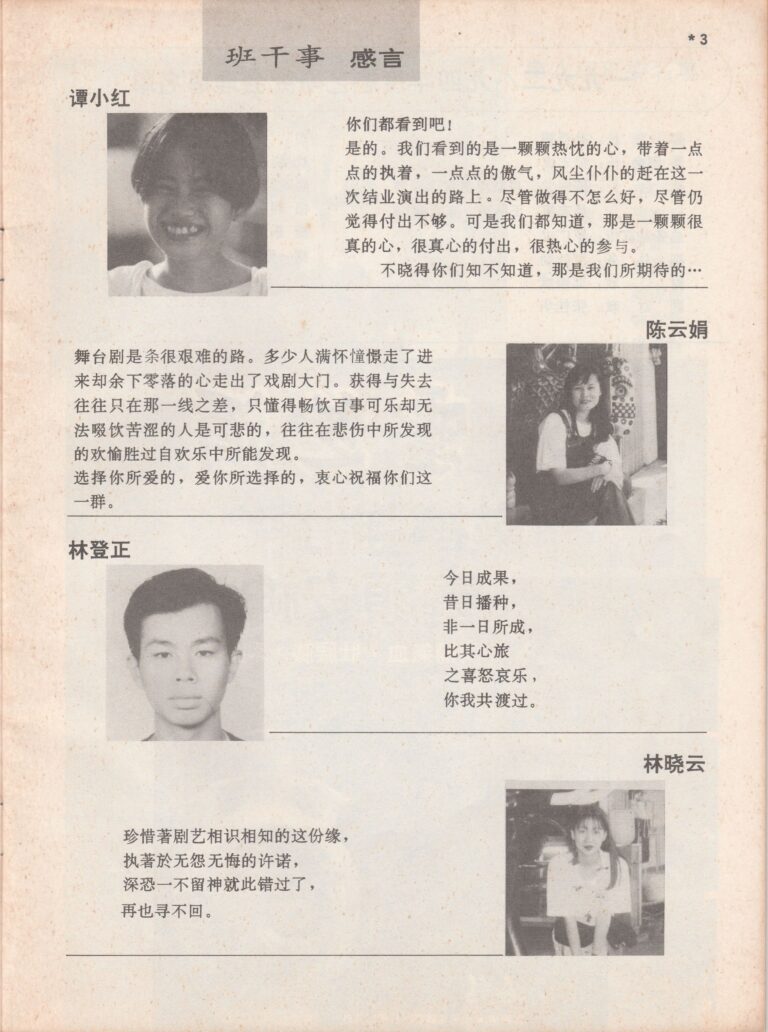 *3
班干事 感言
谭小红
你们都看到吧!
是的。我们看到的是一颗颗热忱的心，带着一点
点的执着，一点点的傲气，风尘仆仆的赶在这一
次结业演出的路上。尽管做得不怎么好，尽管仍
觉得付出不够。可是我们都知道，那是一颗颗很
真的心，很真心的付出，很热心的参与。
不晓得你们知不知道，那是我们所期待的…
陈云娟
舞台剧是条很艰难的路。多少人满怀憧憬走了进
来却余下零落的心走出了戏剧大门。获得与失去
往往只在那一线之差，只懂得畅饮百事可乐却无
法啜饮苦涩的人是可悲的，往往在悲伤中所发现
的欢愉胜过自欢乐中所能发现。
选择你所爱的，爱你所选择的，衷心祝福你们这
一群。
林登正
今日成果，
昔日播种，
非一日所成，
比其心旅
之喜怒哀乐，
你我共渡过。
林晓云
珍惜著剧艺相识相知的这份缘，
执著於无怨无悔的许诺，
深恐一不留神就此错过了，
再也寻不回。